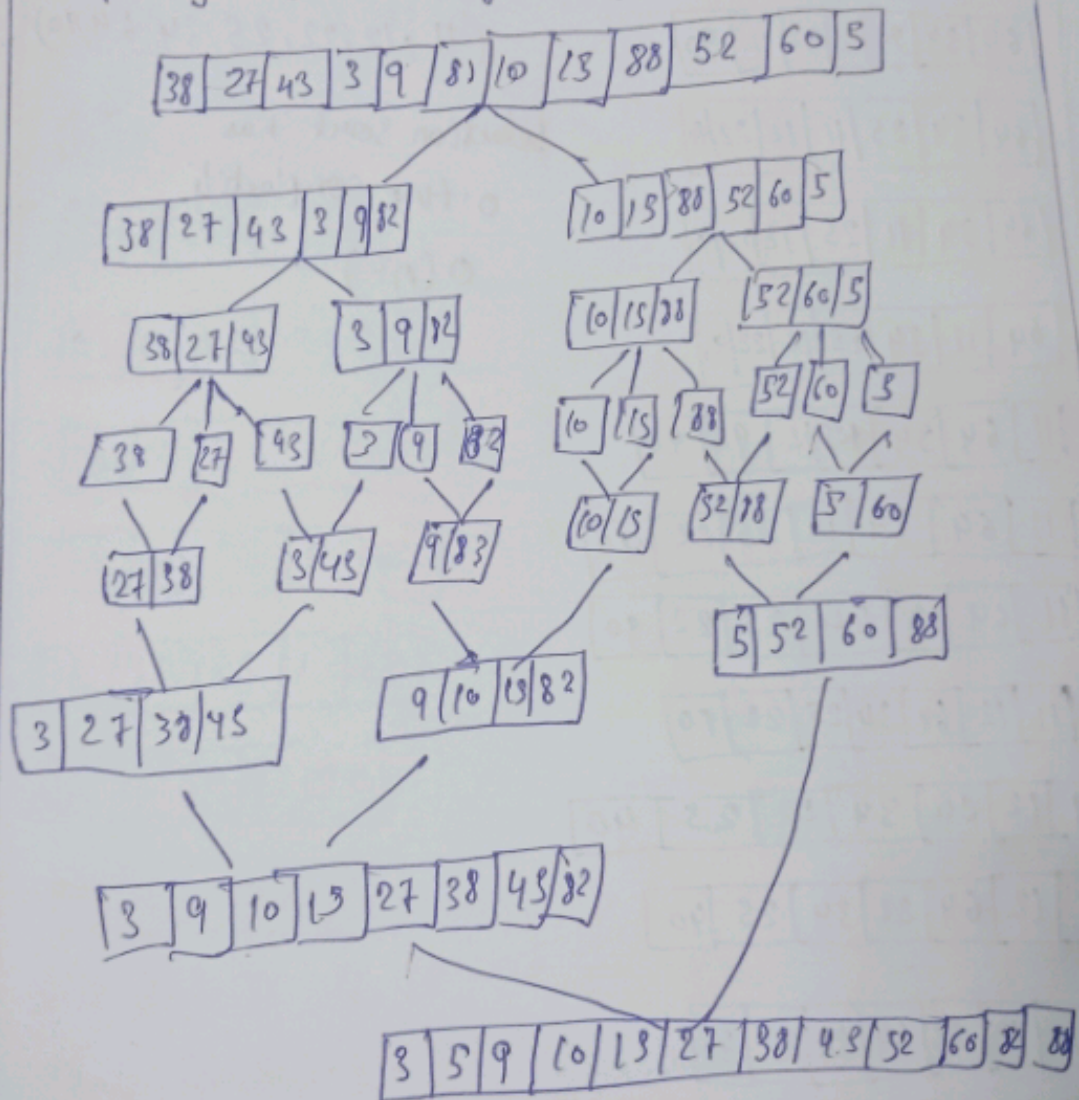 38 27 43 3 9 82 10 15 88 52 60 5
38 27 43 3 9 82
10 15 88 52 60 5
38 27 43
3 9 82
10 15 88
52 60 5
38 27 43 3 9 82
10 15 88
52 60 5
27 38
3 43
9 83
10 15
52 88
5 60
5 52 60 88
3 27 38 43
9 10 15 82
3 9 10 15 27 38 43 82
3 5 9 10 15 27 38 43 52 60 82 88